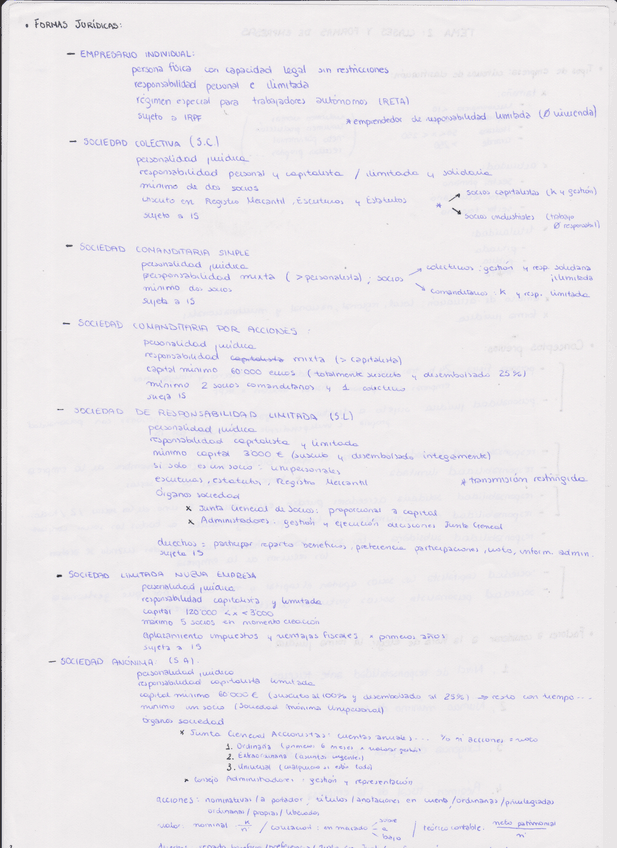 • FORMAS JURÍDICAS:
— EMPRESARIO INDIVIDUAL:
persona física con capacidad legal sin restricciones
responsabilidad personal e ilimitada
régimen especial para trabajadores autónomos (RETA)
sujeto a IRPF
* emprendedor de responsabilidad limitada (Ø vivienda)
— SOCIEDAD COLECTIVA (S.C)
personalidad jurídica
responsabilidad personal y capitalista / ilimitada y solidaria
mínimo de dos socios
inscrito en Registro Mercantil, Escrituras y Estatutos
sujeto a IS
* → socios capitalistas (k y gestión)
→ socios industriales (trabajo Ø responsabil)
— SOCIEDAD COMANDITARIA SIMPLE
personalidad jurídica
responsabilidad mixta (> personalista); socios
→ colectivos: gestión y resp. solidaria ilimitada
→ comanditarios: k y resp. limitada
mínimo dos socios
sujeta a IS
— SOCIEDAD COMANDITARIA POR ACCIONES:
personalidad jurídica
responsabilidad capitalista mixta (> capitalista)
capital mínimo 60'000 euros (totalmente suscrito y desembolsado 25%)
mínimo 2 socios comanditarios y 1 colectivo
sujeta IS
— SOCIEDAD DE RESPONSABILIDAD LIMITADA (S.L)
personalidad jurídica
responsabilidad capitalista y limitada
mínimo capital 3000 € (suscrito y desembolsado íntegramente)
si solo es un socio: unipersonales
escrituras, estatutos, Registro Mercantil
* transmisión restringida
Órganos sociedad
x Junta General de Socios: proporcional a capital
x Administradores: gestión y ejecución decisiones Junta General
derechos: participar reparto beneficios, preferencia participaciones, voto, inform. admin.
sujeta IS
— SOCIEDAD LIMITADA NUEVA EMPRESA
personalidad jurídica
responsabilidad capitalista y limitada
capital 120'000 < x < 3'000
máximo 5 socios en momento creación
aplazamiento impuestos y ventajas fiscales x primeros años
sujeta a IS
— SOCIEDAD ANÓNIMA: (S.A)
personalidad jurídica
responsabilidad capitalista limitada
capital mínimo 60'000 € (suscrito al 100% y desembolsado al 25%) → resto con tiempo...
mínimo un socio (Sociedad Anónima Unipersonal)
Órganos sociedad
x Junta General Accionistas: cuentas anuales... % nº acciones = voto
1. Ordinaria (primeros 6 meses
2. Extraordinaria (asuntos urgentes)
3. Universal (cualquiera si están todos)
x Consejo Administradores: gestión y representación
acciones: nominativas / al portador; títulos / anotaciones en cuenta / ordinarias / privilegiadas
ordinarias / propias / liberadas
valor: nominal k/n / cotización: en mercado sobre a bajo / teórico contable: neto patrimonial/n